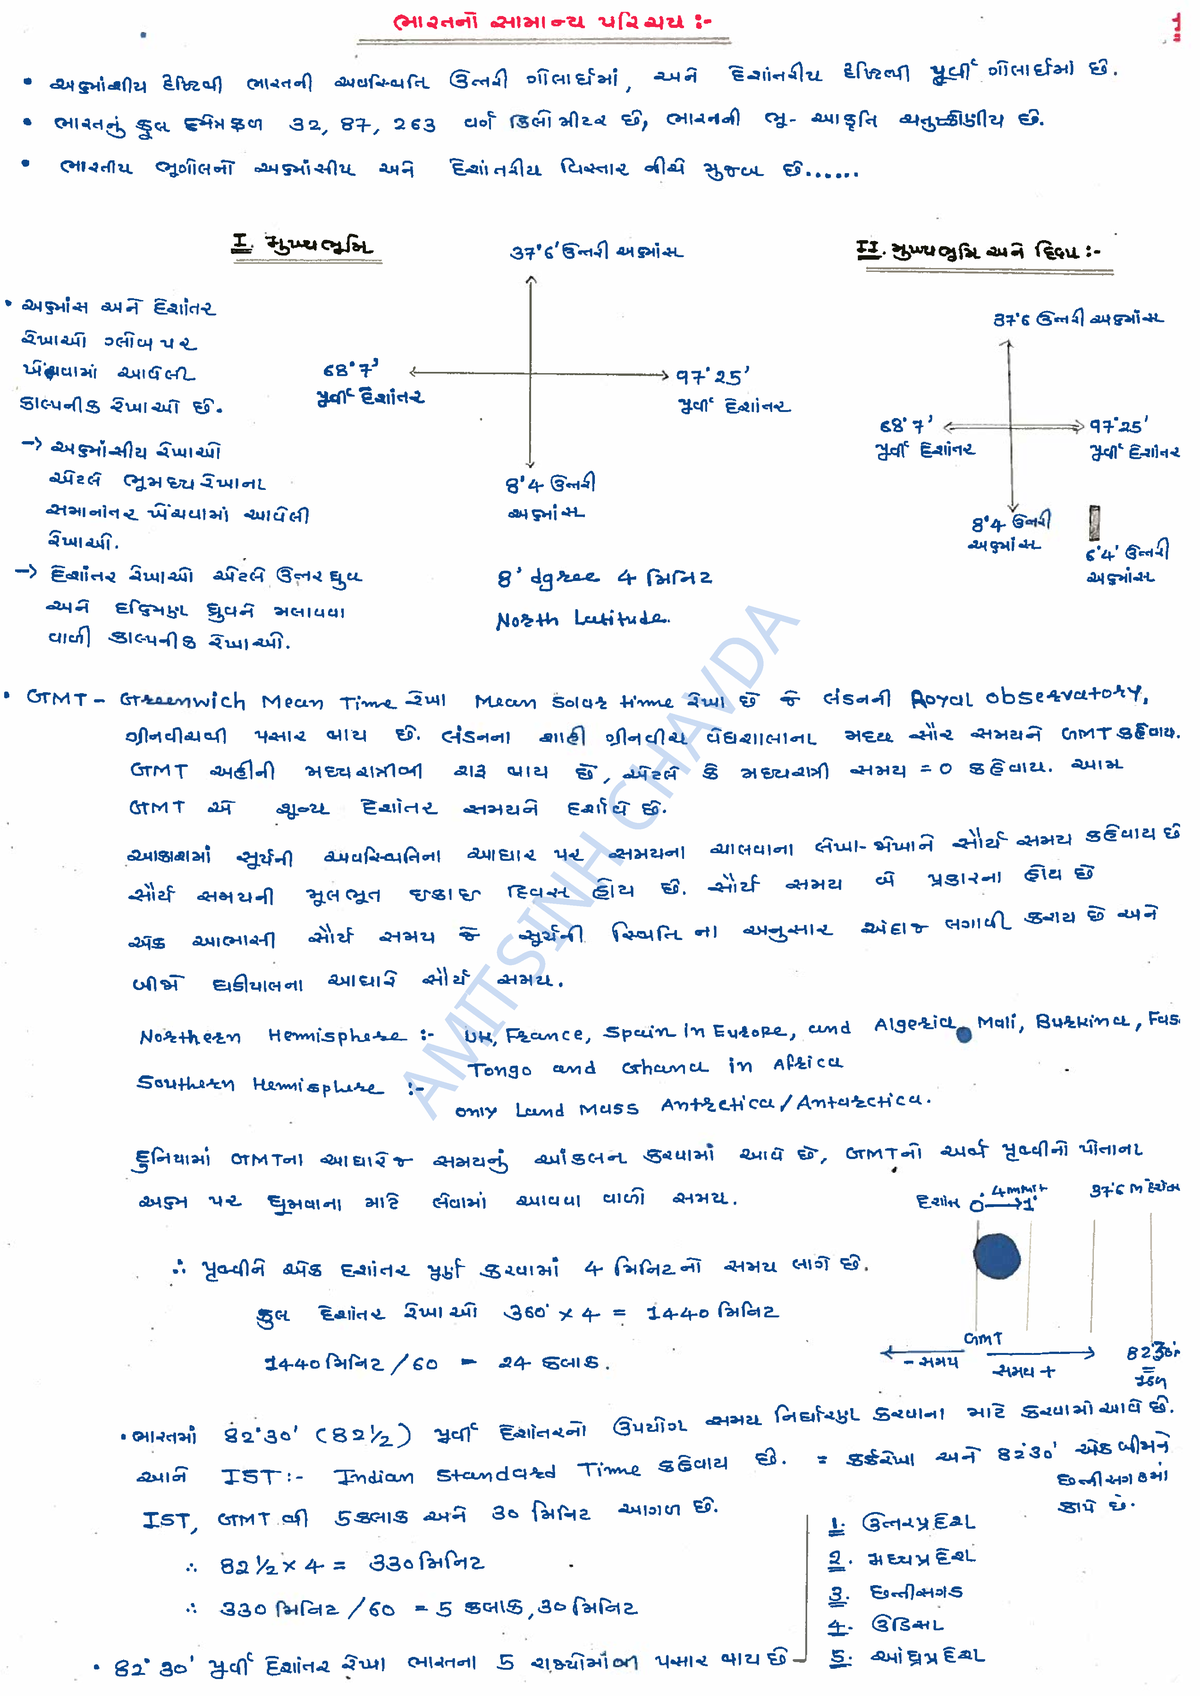 ભારતનો સામાન્ય પરિચય :-
• અક્ષાંશીય દ્રષ્ટિથી ભારતની અવસ્થિતિ ઉત્તરી ગોલાર્ધમાં, અને દેશાંતરીય દ્રષ્ટિથી પૂર્વી ગોલાર્ધમાં છે.
• ભારતનું કુલ ક્ષેત્રફળ 32,87,263 વર્ગ કિલોમીટર છે, ભારતની ભૂ-આકૃતિ ચતુષ્કોણીય છે.
• ભારતીય ભૂગોલનો અક્ષાંસીય અને દેશાંતરીય વિસ્તાર નીચે મુજબ છે......
I. મુખ્યભૂમિ
37°6' ઉત્તરી અક્ષાંસ
68°7'
પૂર્વી દેશાંતર
97°25'
પૂર્વી દેશાંતર
8°4 ઉત્તરી
અક્ષાંસ
8° dgree 4 મિનિટ
North Latitude.
II. મુખ્યભૂમિ અને દ્વિપ :-
37°6 ઉત્તરી અક્ષાંસ
68°7'
પૂર્વી દેશાંતર
97°25'
પૂર્વી દેશાંતર
8°4 ઉત્તરી
અક્ષાંસ
6°4' ઉત્તરી
અક્ષાંસ
• અક્ષાંસ અને દેશાંતર
રેખાઓ ગ્લોબ પર
ખેંચવામાં આવેલી
કાલ્પનીક રેખાઓ છે.
→ અક્ષાંસીય રેખાઓ
એટલે ભૂમધ્ય રેખાના
સમાનાંતર ખેંચવામાં આવેલી
રેખાઓ.
→ દેશાંતર રેખાઓ એટલે ઉત્તર ધ્રુવ
અને દક્ષિણ ધ્રુવને મલાવવા
વાળી કાલ્પનીક રેખાઓ.
• GMT - Greenwich Mean Time રેખા Mean Solar time રેખા છે જે લંડનની Royal observatory,
ગ્રીનવીચથી પસાર થાય છે. લંડનના શાહી ગ્રીનવીચ વેધશાલાના મધ્ય સૌર સમયને GMT કહેવાય.
GMT અહીંની મધ્યરાત્રીથી શરૂ થાય છે, એટલે કે મધ્યરાત્રી સમય = 0 કહેવાય. આમ
GMT એ શૂન્ય દેશાંતર સમયને દર્શાવે છે.
આકાશમાં સૂર્યની અવસ્થિતિના આધાર પર સમયના ચાલવાના લેખા-જોખાને સૌર્ય સમય કહેવાય છે
સૌર્ય સમયની મૂલભૂત ઇકાઇ દિવસ હોય છે. સૌર્ય સમય બે પ્રકારના હોય છે
એક આભાસી સૌર્ય સમય જે સૂર્યની સ્થિતિ ના અનુસાર અંદાજ લગાવી કરાય છે અને
બીજો ઘડીયાલના આધારે સૌર્ય સમય.
Northern Hemisphere :- UK, France, Spain in Europe, and Algeria, Mali, Burkina, Fas
Tongo and Ghana in Africa
Southern Hemisphere :-
only Land Mass Antrctica/Antarctica.
દુનિયામાં GMTના આધારેજ સમયનું આંકલન કરવામાં આવે છે, GMTનો અર્થ પૃથ્વીનો પોતાના
અક્ષ પર ઘુમવાના માટે લેવામાં આવવા વાળી સમય.
દેશાંતર 0° → 1°
37°6
GMT
- સમય
સમય +
82°30'
∴ પૃથ્વીને એક દેશાંતર પૂર્ણ કરવામાં 4 મિનિટનો સમય લાગે છે.
કુલ દેશાંતર રેખાઓ 360° × 4 = 1440 મિનિટ
1440 મિનિટ / 60 = 24 કલાક.
• ભારતમાં 82°30' (82½) પૂર્વી દેશાંતરનો ઉપયોગ સમય નિર્ધારણ કરવાના માટે કરવામાં આવે છે.
આને IST :- Indian Standard Time કહેવાય છે. = કર્કરેખા અને 82°30' એકબીજાને
છત્તીસગઢમાં
કાપે છે.
IST, GMT થી 5 કલાક અને 30 મિનિટ આગળ છે.
∴ 82½ × 4 = 330 મિનિટ
∴ 330 મિનિટ / 60 = 5 કલાક, 30 મિનિટ
• 82°30' પૂર્વી દેશાંતર રેખા ભારતના 5 રાજ્યોમાંથી પસાર થાય છે
1. ઉત્તરપ્રદેશ
2. મધ્યપ્રદેશ
3. છત્તીસગઢ
4. ઉડિસા
5. આંધ્રપ્રદેશ
AMITSINH CHAVDA